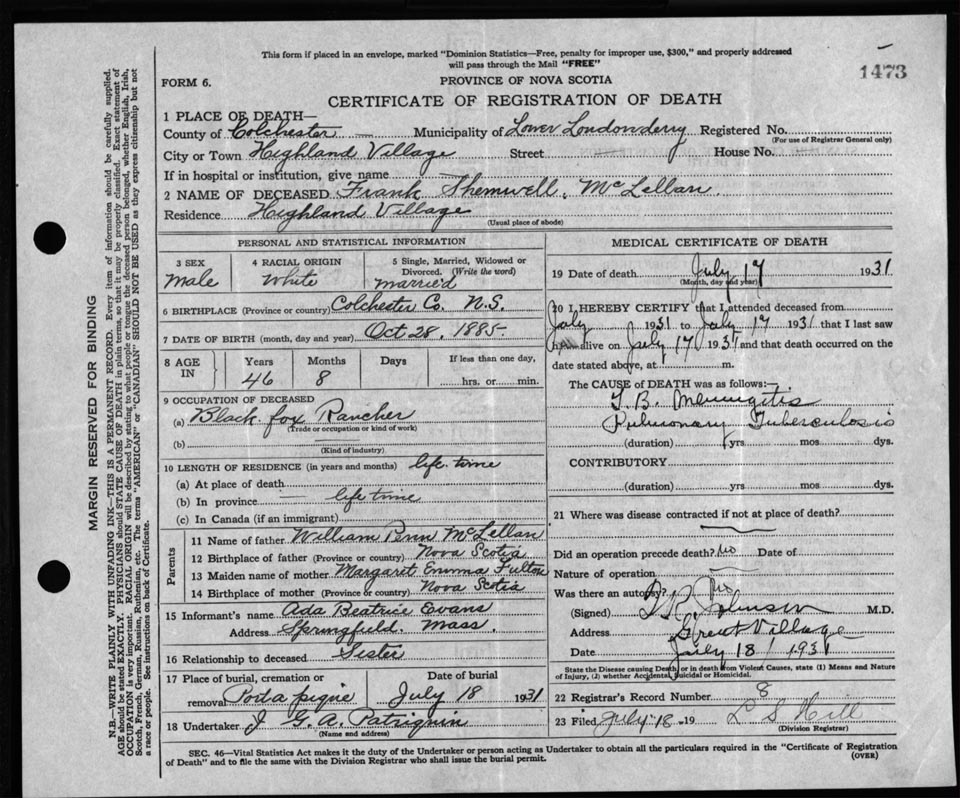 This form if placed in an envelope, marked "Dominion Statistics—Free, penalty for improper use, $300," and properly addressed
will pass through the Mail "FREE"
1473
FORM 6.
PROVINCE OF NOVA SCOTIA
CERTIFICATE OF REGISTRATION OF DEATH
1 PLACE OF DEATH—
County of Colchester — Municipality of Lower Londonderry Registered No.
(For use of Registrar General only)
City or Town Highland Village Street House No.
If in hospital or institution, give name
2 NAME OF DECEASED Frank Themwell McLellan
Residence Highland Village
(Usual place of abode)
PERSONAL AND STATISTICAL INFORMATION
3 SEX
Male
4 RACIAL ORIGIN
White
5 Single, Married, Widowed or
Divorced. (Write the word)
married
6 BIRTHPLACE (Province or country) Colchester Co. N.S.
7 DATE OF BIRTH (month, day and year) Oct 28, 1885
8 AGE IN
Years Months Days If less than one day,
46 8 hrs. or min.
9 OCCUPATION OF DECEASED
(a) Black fox Rancher
(Trade or occupation or kind of work)
(b)
(Kind of industry)
10 LENGTH OF RESIDENCE (in years and months) life time
(a) At place of death
(b) In province life time
(c) In Canada (if an immigrant)
Parents
11 Name of father William Penn McLellan
12 Birthplace of father (Province or country) Nova Scotia
13 Maiden name of mother Margaret Emma Fulton
14 Birthplace of mother (Province or country) Nova Scotia
15 Informant's name Ada Beatrice Evans
Address Springfield. Mass.
16 Relationship to deceased Sister
17 Place of burial, cremation or Date of burial
removal Portapique July 18 1931
18 Undertaker J G. A. Patriquin
(Name and address)
MEDICAL CERTIFICATE OF DEATH
19 Date of death July 17 1931
(Month, day and year)
20 I HEREBY CERTIFY that I attended deceased from
July 1931 to July 17 1931 that I last saw
him alive on July 17 1931 and that death occurred on the
date stated above, at m.
The CAUSE of DEATH was as follows:—
T. B. Meningitis
Pulmonary Tuberculosis
(duration) yrs mos dys.
CONTRIBUTORY
(duration) yrs mos dys.
21 Where was disease contracted if not at place of death?
Did an operation precede death? no Date of
Nature of operation
Was there an autopsy? no
(Signed) Johnson M.D.
Address Great Village
Date July 18 / 1931
State the Disease causing Death, or in death from Violent Causes, state (1) Means and Nature
of Injury, (2) whether Accidental, Suicidal or Homicidal.
22 Registrar's Record Number 8
23 Filed July 18 19 L S Hill
(Division Registrar)
SEC. 46—Vital Statistics Act makes it the duty of the Undertaker or person acting as Undertaker to obtain all the particulars required in the "Certificate of Registration
of Death" and to file the same with the Division Registrar who shall issue the burial permit.
(OVER)
MARGIN RESERVED FOR BINDING
N.B—WRITE PLAINLY WITH UNFADING INK—THIS IS A PERMANENT RECORD. Every item of information should be carefully supplied.
AGE should be stated EXACTLY. PHYSICIANS should STATE CAUSE OF DEATH in plain terms, so that it may be properly classified. Exact statement of
OCCUPATION is very important. RACIAL ORIGIN will be described by stating to what people or tongue the deceased person belonged, whether English, Irish,
Scotch, French, German, Russian, Ruthenian, etc. The terms "AMERICAN" or "CANADIAN" SHOULD NOT BE USED as they express citizenship but not
a race or people. See instructions on back of Certificate.